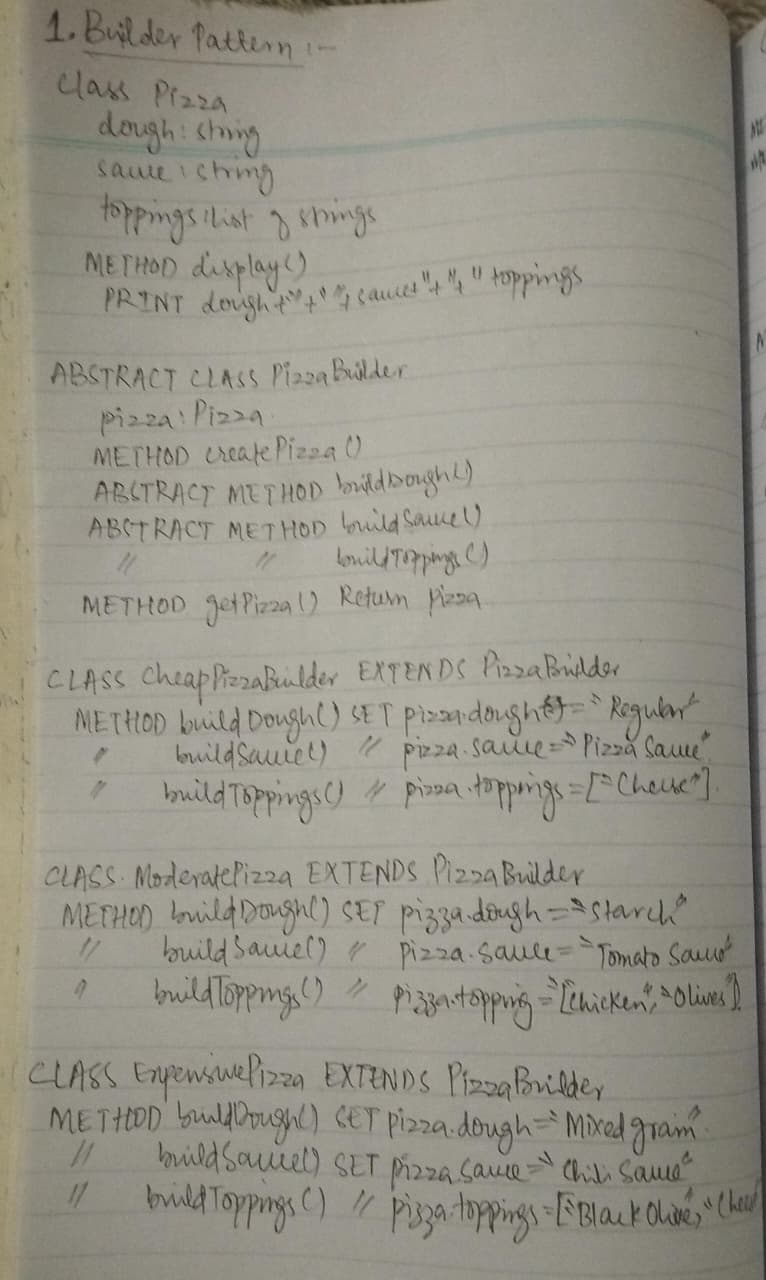 1. Builder Pattern :-
Class Pizza
dough : string
sauce : string
toppings : list of strings
METHOD display()
PRINT dough +""+" "+ sauce +" "+" "+ " toppings
ABSTRACT CLASS PizzaBuilder
pizza : Pizza
METHOD createPizza()
ABSTRACT METHOD buildDough()
ABSTRACT METHOD buildSauce()
" " buildToppings()
METHOD getPizza() Return pizza
CLASS CheapPizzaBuilder EXTENDS PizzaBuilder
METHOD buildDough() SET pizza.dough = "Regular"
" buildSauce() " pizza.sauce = "Pizza Sauce"
" buildToppings() " pizza.toppings = ["Cheese"].
CLASS ModeratePizza EXTENDS PizzaBuilder
METHOD buildDough() SET pizza.dough = "Starch"
" buildSauce() " pizza.sauce = "Tomato Sauce"
" buildToppings() " pizza.topping = ["Chicken", "Olives"]
CLASS ExpensivePizza EXTENDS PizzaBuilder
METHOD buildDough() SET pizza.dough = "Mixed grain"
" buildSauce() SET pizza.sauce = "Chili Sauce"
" buildToppings() " pizza.toppings = ["Black Olive", "